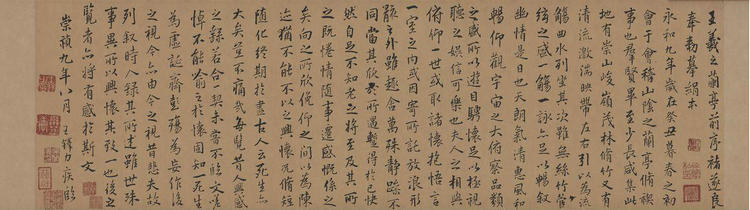 王羲之蘭亭前序褚遂良
奉勅摹賜本
永和九年歲在癸丑暮春之初
會于會稽山陰之蘭亭脩稧
事也羣賢畢至少長咸集此
地有崇山峻嶺茂林脩竹又有
清流激湍映帶左右引以為流
觴曲水列坐其次雖無絲竹管
絃之盛一觴一詠亦足以暢敘
幽情是日也天朗氣清惠風和
暢仰觀宇宙之大俯察品類
之盛所以遊目騁懷足以極視
聽之娛信可樂也夫人之相與
俯仰一世或取諸懷抱悟言
一室之內或因寄所託放浪形
骸之外雖趣舍萬殊靜躁不
同當其欣於所遇蹔得於己快
然自足不知老之將至及其所
之既惓情隨事遷感慨係之
矣向之所欣俛仰之間以為陳
迹猶不能不以之興懷況脩短
隨化終期於盡古人云死生亦
大矣豈不痛哉每覽昔人興感
之由若合一契未嘗不臨文嗟
悼不能喻之於懷固知一死生
為虛誕齊彭殤為妄作後
之視今亦由今之視昔悲夫故
列敘時人錄其所述雖世殊
事異所以興懷其致一也後之
覽者亦將有感於斯文
崇禎九年八月
王鐸力疾臨